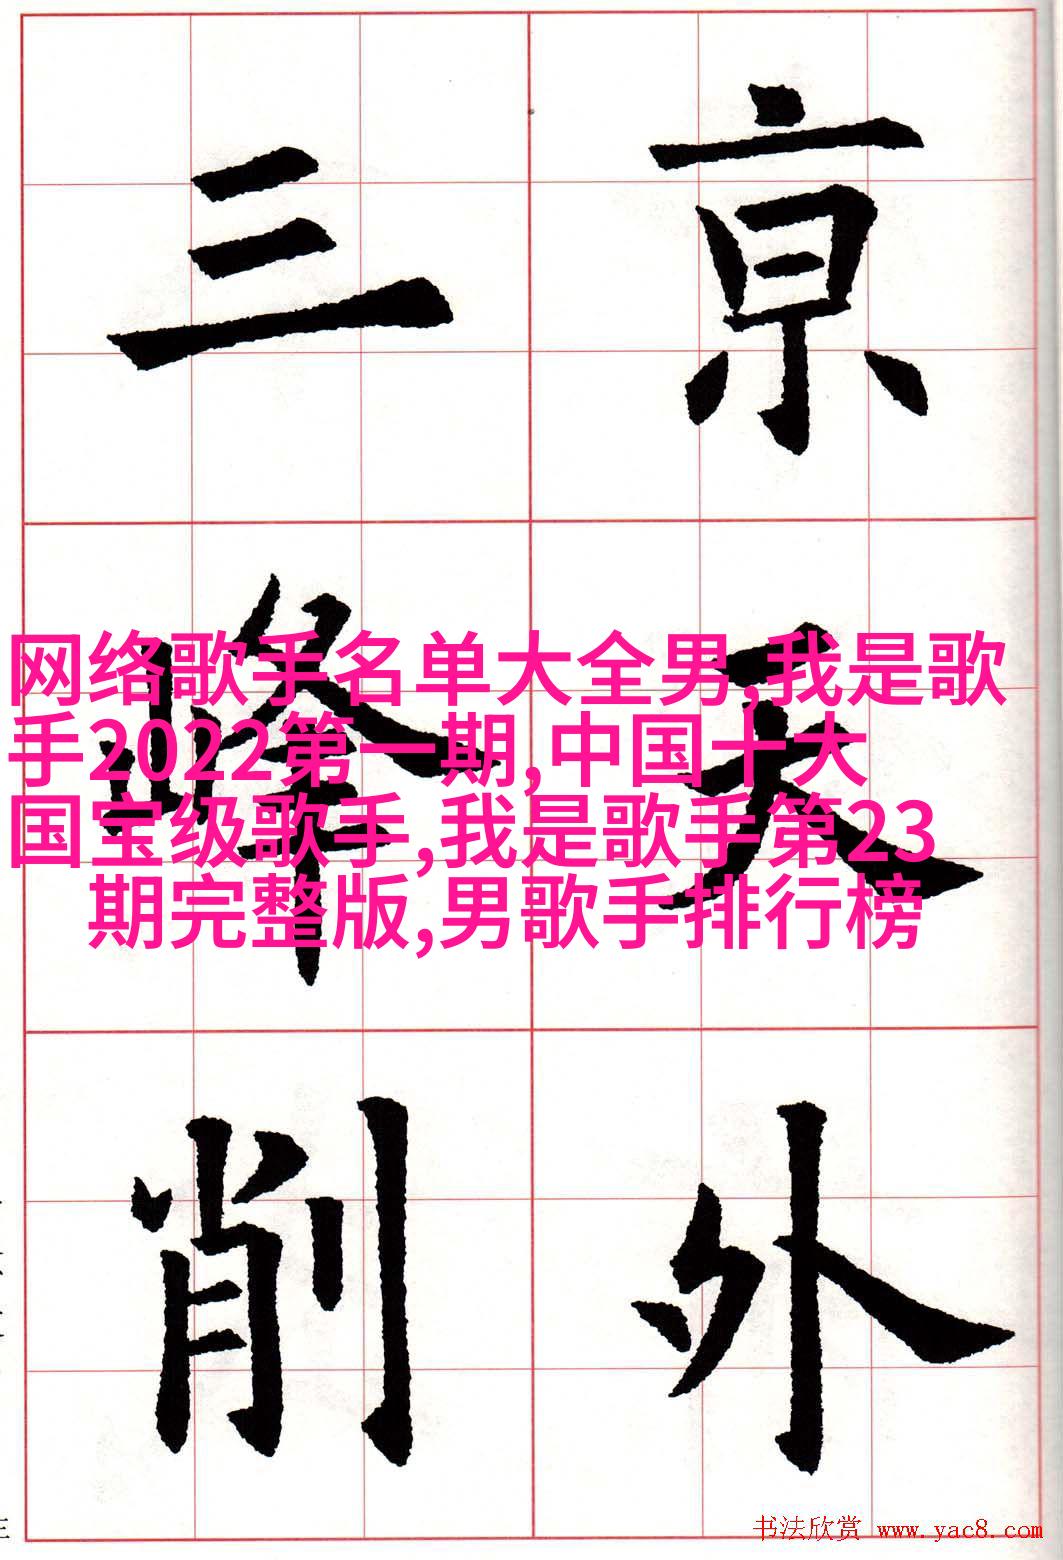 亰天外
三峰削
网络歌手名单大全男,我是歌
手2022第一期,中国十大
国宝级歌手,我是歌手第23
期完整版,男歌手排行榜
书法欣赏 www.yac8.com